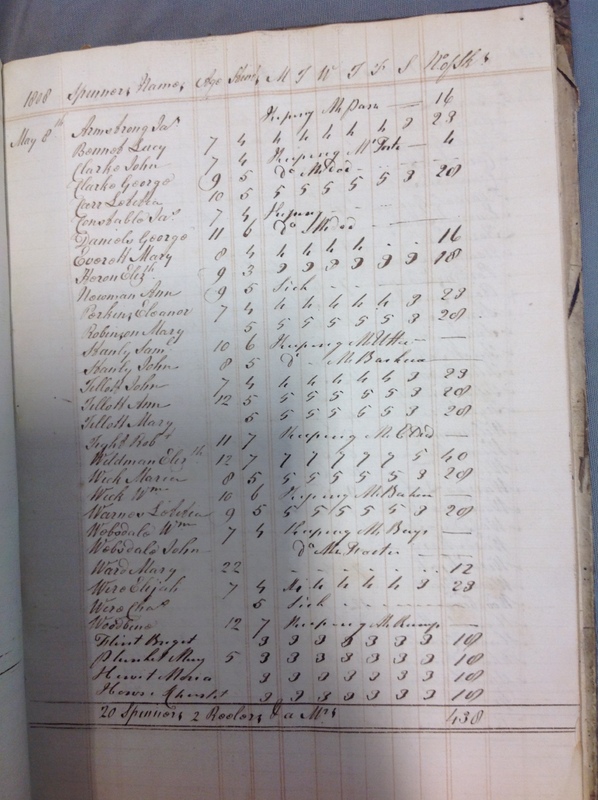 1808 Spinners Names Age Stint M T W T F S No of Sks
May 8th Armstrong Jas Keeping 16
Bennet Lucy 7 4 4 4 4 4 4 3 23
Clarke John 7 4 Keeping 4
Clarke George 9 5 Do 
Carr Lobitha 10 5 5 5 5 5 5 3 28
Constable Jas 7 4 Keeping
Daniels George 11 6 Do
Everett Mary 8 4 4 4 4 4 16
Heron Elizth 9 3 3 3 3 3 3 3 18
Newman Ann 9 5 Sick
Perkins Eleanor 7 4 4 4 4 4 4 3 23
Robinson Mary 5 5 5 5 5 5 3 28
Stanly Saml 10 6 Keeping
Stanly John 8 5 Do
Tillott John 7 4 4 4 4 4 4 3 23
Tillott Ann 12 5 5 5 5 5 5 3 28
Tillott Mary 5 5 5 5 5 5 3 28
Robt 11 7 Keeping
Wildman Elizth 12 7 7 7 7 7 7 5 40
Wick Maria 8 5 5 5 5 5 5 3 28
Wick Wm 10 6 Keeping
Warnes Lobitha 9 5 5 5 5 5 5 3 28
Wobsdale Wm 7 4 Keeping
Wobsdale John Do
Ward Mary 22 12
Were Elijah 7 4 4 4 4 4 4 3 23
Were Chas 5 Sick
12 7 Keeping
Flint Bryet 3 3 3 3 3 3 3 18
Plunket May 5 3 3 3 3 3 3 3 18
Hewit Maria 3 3 3 3 3 3 3 18
3 3 3 3 3 3 3 18
20 Spinners 2 Reelers & a Mrs 438